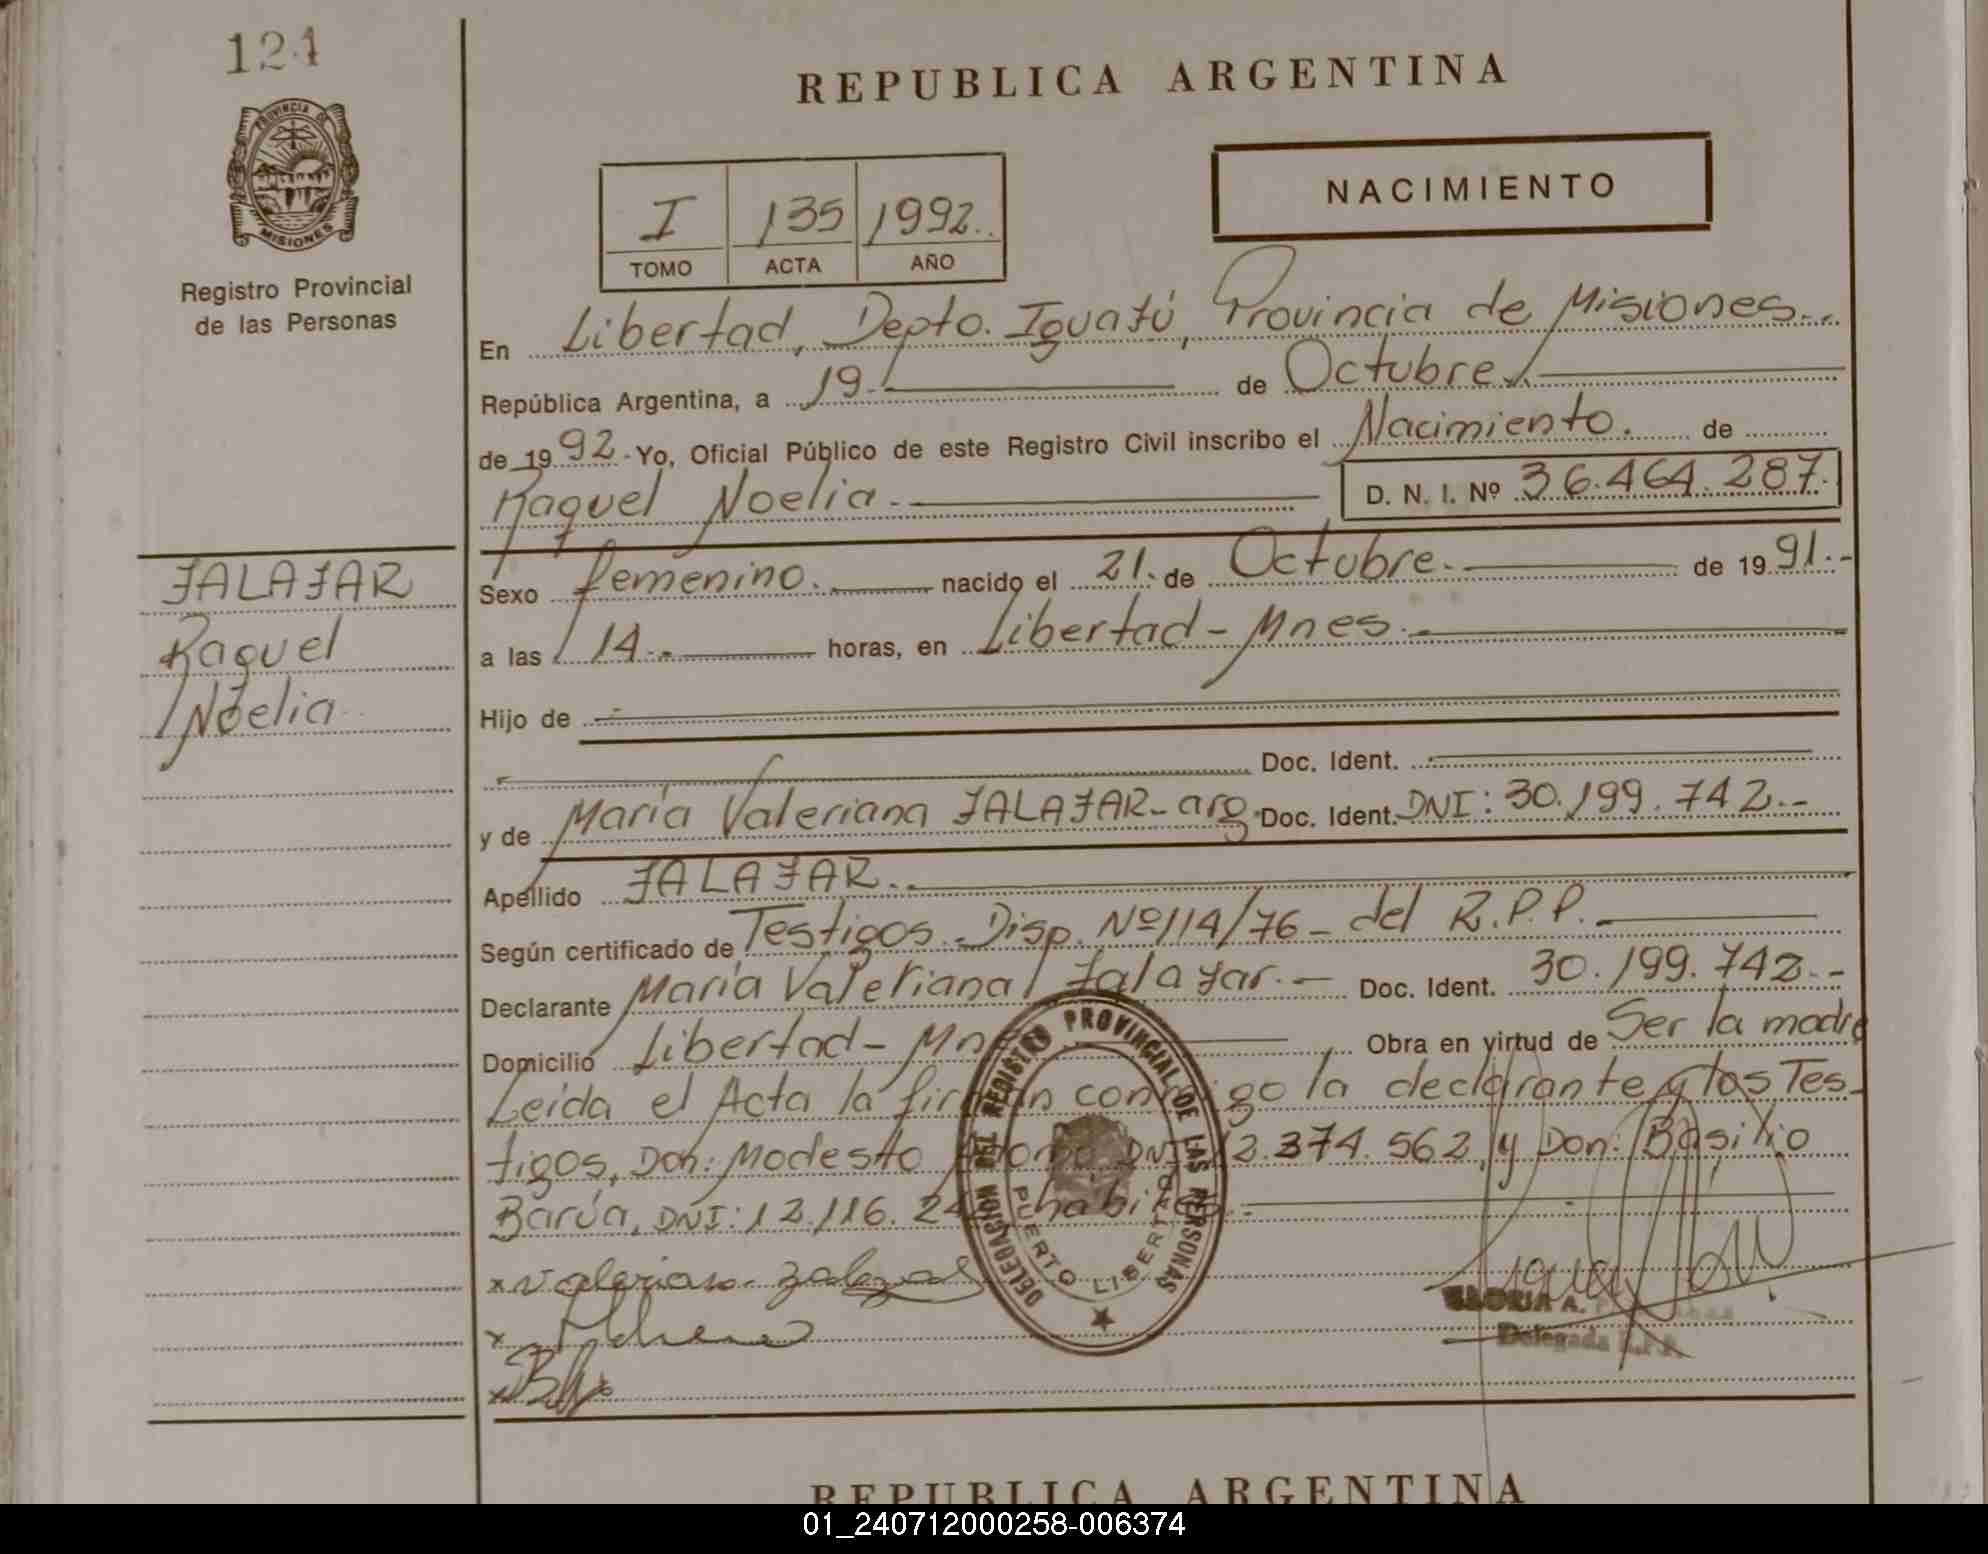 124
REPUBLICA ARGENTINA
PROVINCIA DE
MISIONES
Registro Provincial
de las Personas
I 135 1992.
TOMO ACTA AÑO
NACIMIENTO
En Libertad, Depto. Iguazú, Provincia de Misiones.
República Argentina, a 19 de Octubre
de 1992 Yo, Oficial Público de este Registro Civil inscribo el Nacimiento. de
Raquel Noelia.- D. N. I. Nº 36.464.287.
ZALAZAR
Raquel
Noelia
Sexo femenino. nacido el 21. de Octubre. de 1991.-
a las 14.- horas, en Libertad - Mnes.-
Hijo de
Doc. Ident.
y de María Valeriana ZALAZAR - arg. Doc. Ident. DNI: 30.199.742.-
Apellido ZALAZAR.
Según certificado de Testigos. Disp. Nº 114/76 - del R.P.P.
Declarante María Valeriana Zalazar.- Doc. Ident. 30.199.742.-
Domicilio Libertad - Obra en virtud de Ser la madre
Leida el Acta la firman conmigo la declarante y los Tes-
tigos, Don: Modesto DNI 12.374.562, y Don: Basilio
Barúa, DNI: 12.116. hábiles.-
DELEGACION DEL REGISTRO PROVINCIAL DE LAS PERSONAS
PUERTO LIBERTAD
x Valeriana Zalazar
GLORIA A.
Delegada R.P.P.
REPUBLICA ARGENTINA
01_240712000258-006374